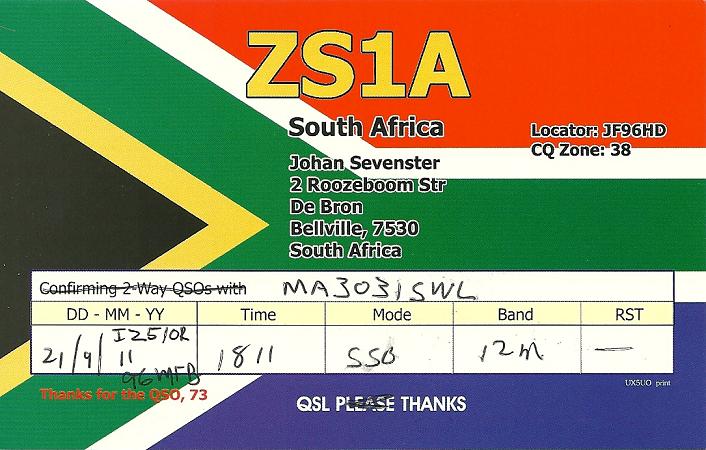 ZS1A
South Africa
Locator: JF96HD
CQ Zone: 38
Johan Sevenster
2 Roozeboom Str
De Bron
Bellville, 7530
South Africa
Confirming 2-Way QSOs with MA3031SWL
DD - MM - YY Time Mode Band RST
21/9/11 1811 SSB 12M —
UX5UO print
Thanks for the QSO, 73
QSL PLEASE THANKS